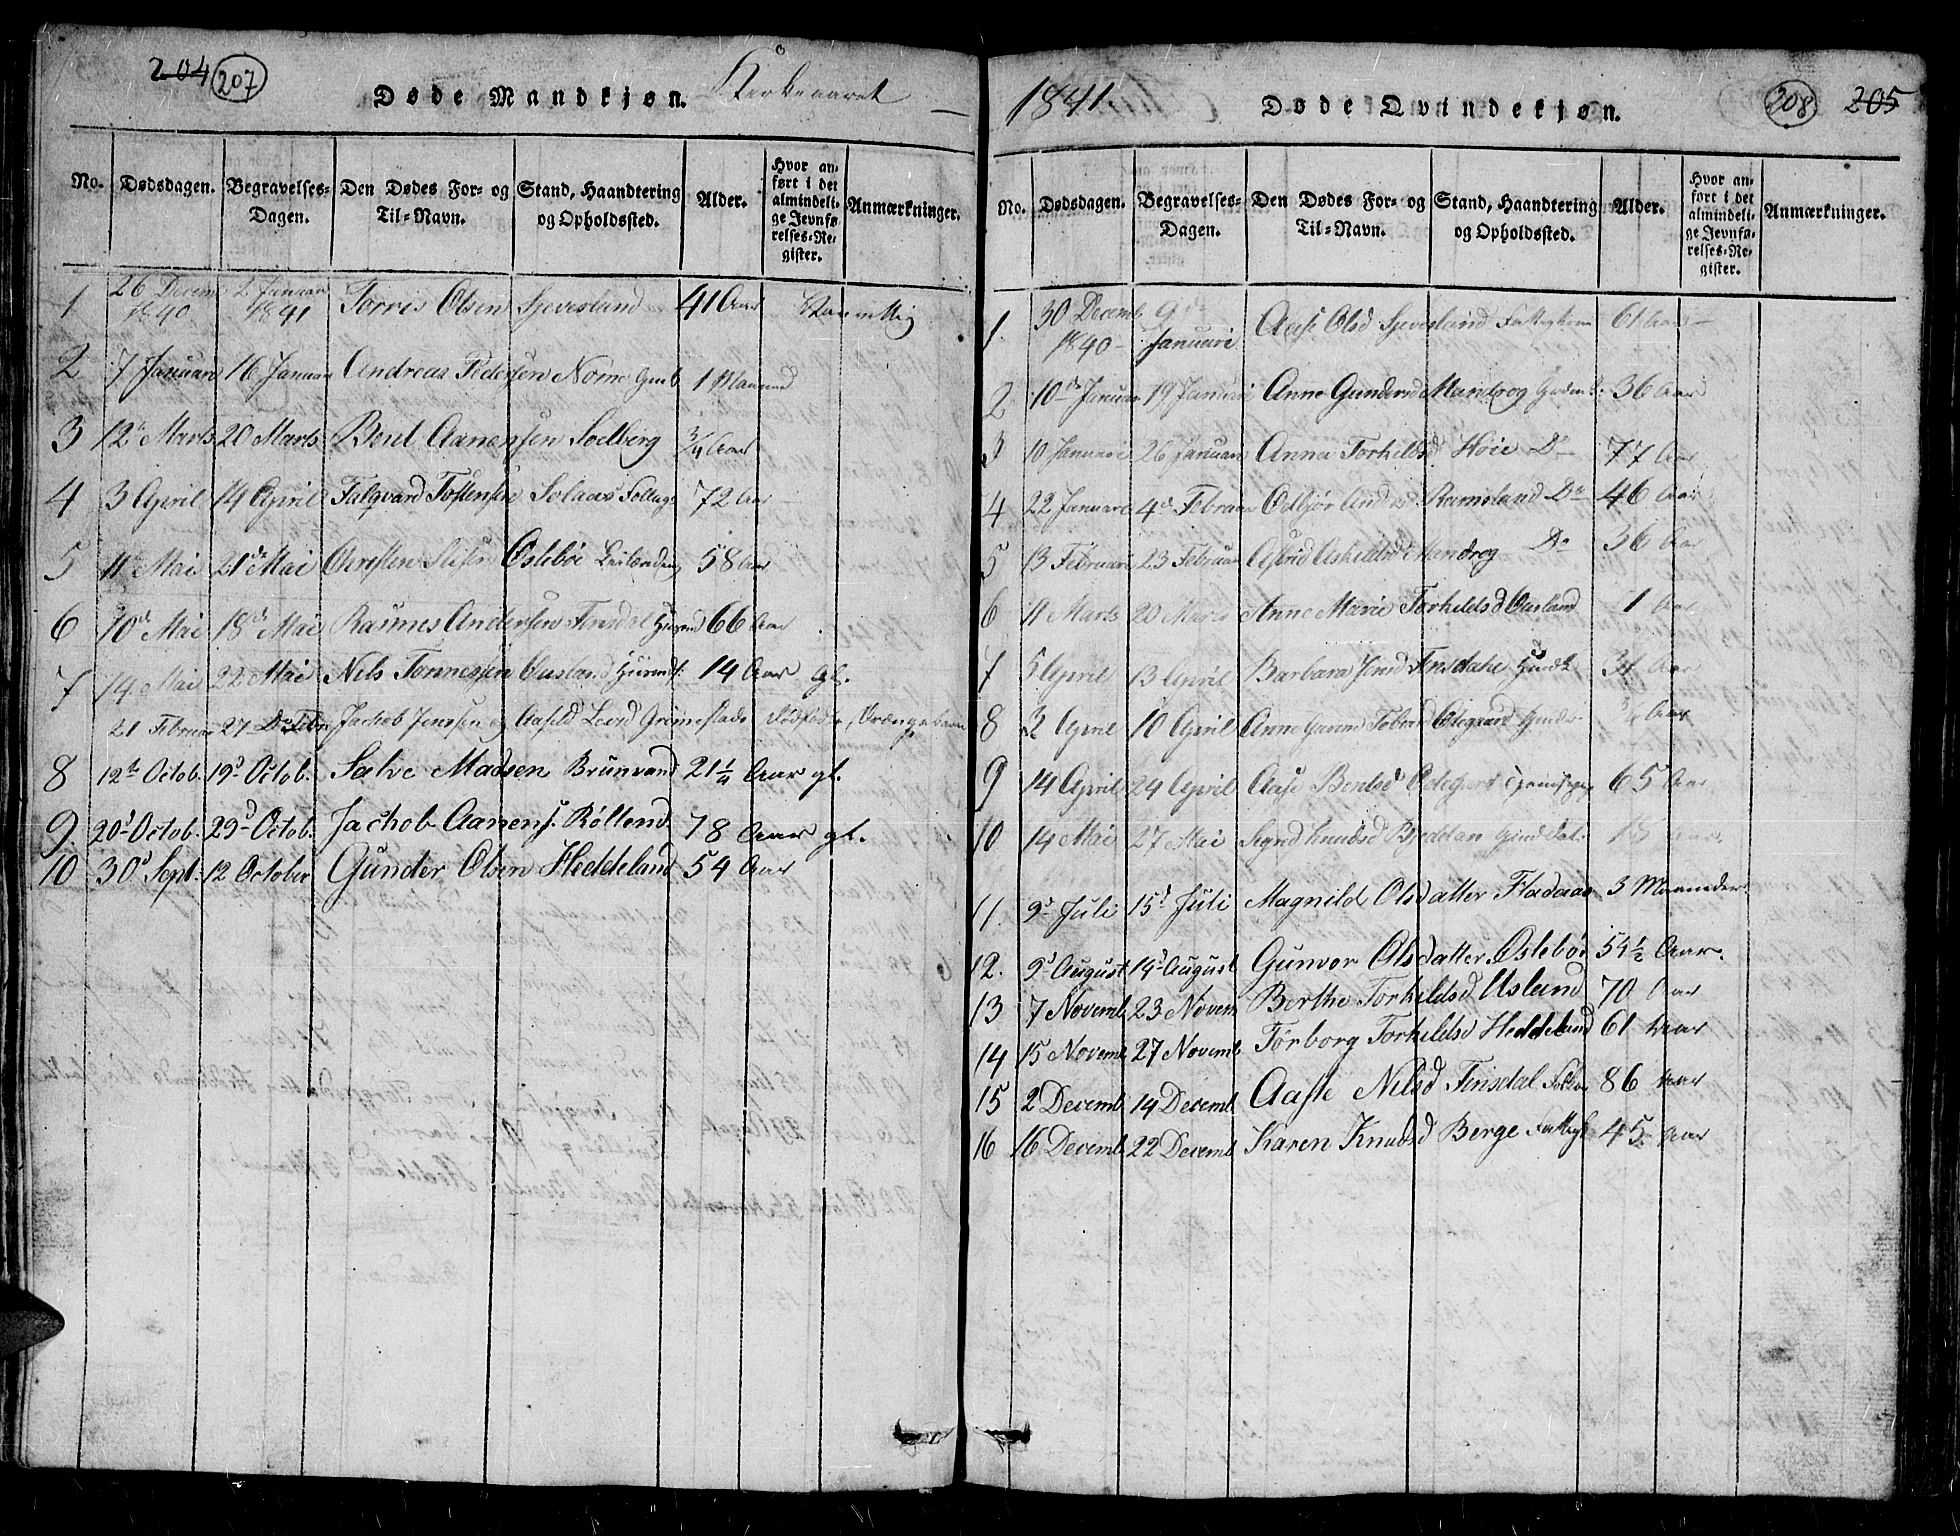 204 207
Døde Mandkjøn. Kirkeaaret
No. Dødsdagen. Begravelses-Dagen. Den Dødes For- og Til-Navn. Stand, Haandtering og Opholdssted. Alder. Hvor anført i det almindelige Jevnførelses-Register. Anmærkninger.
1 26 Decemb 1840 2 Januar 1841 Torris Olsen Sjevesland 41 Aar Vanvittig
2 7 Januari 16 Januar Andreas Pedersen Nome 1 Maaned
3 12 Marts 20 Marts Bent Aanensen Soelberg 3/4 Aar
4 3 April 14 April Talqvard Tostensen Solaas 72 Aar
5 11 Mai 21d Mai Christen Oslebøe 58 Aar
6 10d Mai 18d Mai Rasmus Andersen Finsdal 66 Aar
7 14 Mai 22 Mai Nils Tønnessen Ousland 14 Aar gl.
21 Februar 27 Do Febr Jachob Jenssen og Aasild Grimestads Dødfødte Drængebarn
8 12te Octob. 19d Octob. Salve Madsen Brunvand 21 1/4 Aar gl.
9. 20d Octob. 29d Octob. Jachob Aanens. Røllend 78 Aar gl.
10 30d Sept: 12 October Gunder Olsen Heddeland 54 Aar
1841 Døde Qvindekjøn. 208 205
No. Dødsdagen. Begravelses-Dagen. Den Dødes For- og Til-Navn. Stand, Haandtering og Opholdssted. Alder. Hvor anført i det almindelige Jevnførelses-Register. Anmærkninger.
1. 30 Decemb 1840 9de Januari Aase Olsd Sjevesland 61 Aar
2 10 Januar 19 Januari Anne Gundersd Mandrog 36 Aar
3 10 Januari 26 Januari Anna Torkildsd Høie Do 77 Aar
4 22 Januari 4d Februar Odbjør Andersd Rameland Do 46 Aar
5 13 Februari 23 Februar Astrid Askeldsd Mandrog Do 36 Aar
6 11 Marts 20 Marts Anne Marie Torkeldsd Ousland 1 Aar
7 5 April 13 April Barbara Jensd Finsdahl 34 Aar
8 3 April 10 April Anne Odegaard 3/4 Aar
9 14 April 24 April Aase Bentsd Odegaard 65 Aar
10 14 Mai 27 Mai Signd Knudsd Bjedelan Aar
11. 9d Juli 15d Juli Magnild Olsdatter Fladaas 3 Maaneder
12. 9d August 19d August Gunvor Olsdatter Oslebø 54 1/2 Aar.
13 7 Novemb 23 Novem Berthe Torkildsd Usland 70 Aar
14 15 Novemb 27 Novemb Torborg Torkildsd Heddeland 61 Aar
15 2 Decemb 14 Decemb Aaste Nilsd Finsdal 86 Aar
16 16 Decemb 22 Decemb Karen Knudsd Berge Fattigl 45 Aar